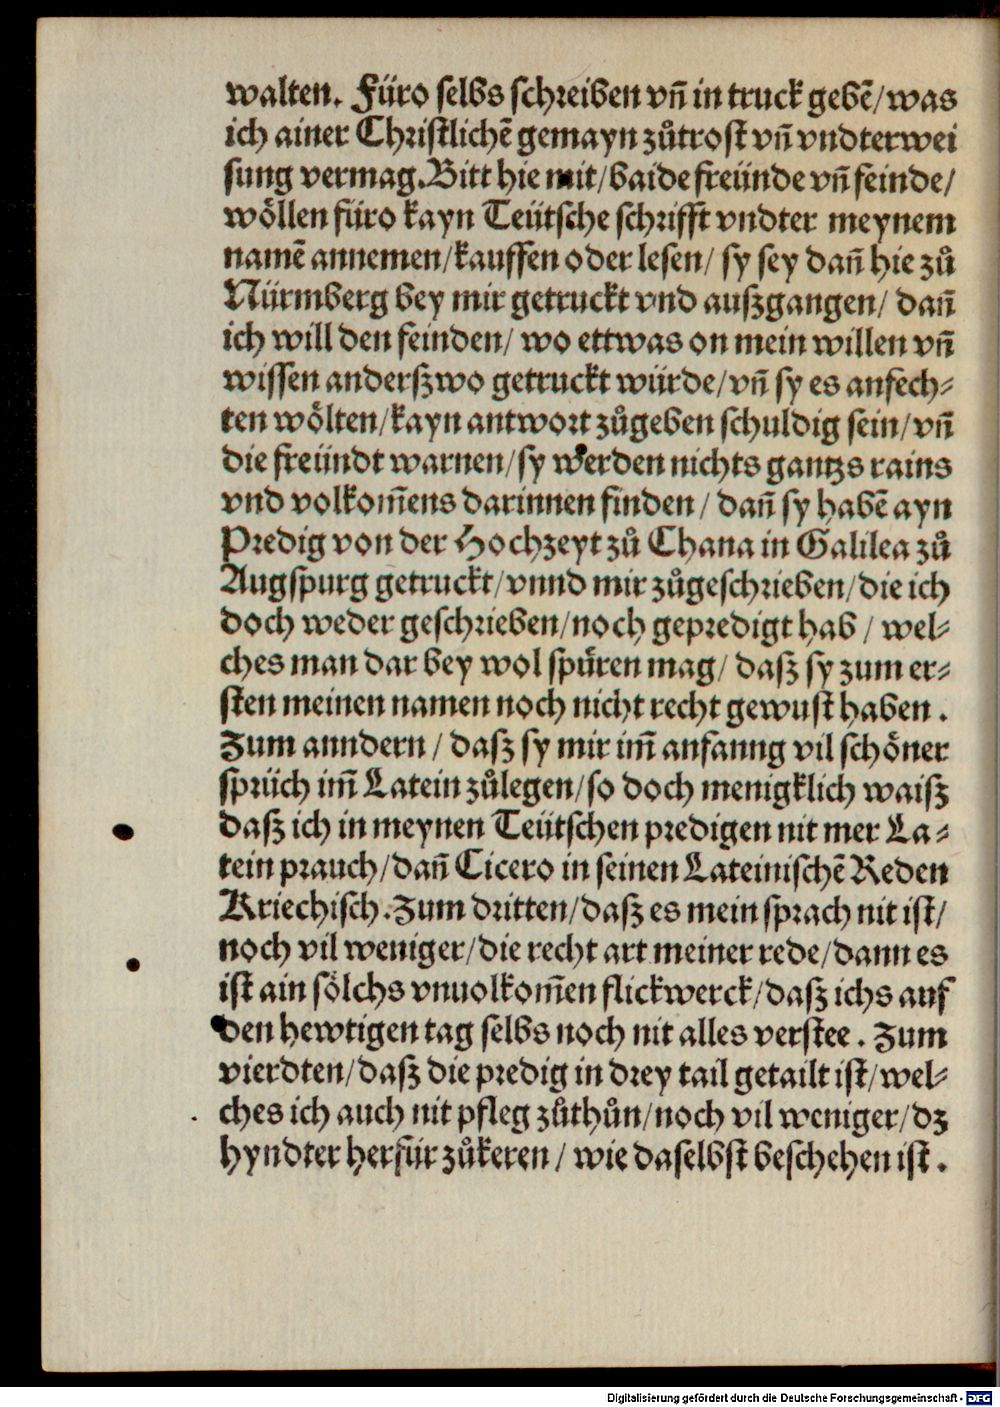 walten. Füro selbs schreiben vñ in truck gebẽ/was
ich ainer Christlichẽ gemayn zůtrost vñ vndterwei
sung vermag.Bitt hie mit/baide freünde vñ feinde/
wöllen füro kayn Teütsche schrifft vndter meynem
namẽ annemen/kauffen oder lesen/ sy sey dañ hie zů
Nürmberg bey mir getruckt vnd außgangen/ dañ
ich will den feinden/ wo ettwas on mein willen vñ
wissen anderßwo getruckt würde/vñ sy es anfech⸗
ten wölten/kayn antwort zůgeben schuldig sein/vñ
die freündt warnen/sy werden nichts gantzs rains
vnd volkom̃ens darinnen finden/ dañ sy habẽ ayn
Predig von der Hochzeyt zů Chana in Galilea zů
Augspurg getruckt/vnnd mir zůgeschrieben/die ich
doch weder geschrieben/noch gepredigt hab / wel⸗
ches man dar bey wol spüren mag/ daß sy zum er⸗
sten meinen namen noch nicht recht gewust haben .
Zum anndern / daß sy mir im̃ anfanng vil schöner
sprüch im̃ Latein zůlegen/so doch menigklich waiß
daß ich in meynen Teütschen predigen nit mer La⸗
tein prauch/dañ Cicero in seinen Lateinischẽ Reden
Kriechisch.Zum dritten/daß es mein sprach nit ist/
noch vil weniger/die recht art meiner rede/dann es
ist ain sölchs vnuolkom̃en flickwerck/daß ichs auf
den hewtigen tag selbs noch nit alles verstee . Zum
vierdten/daß die predig in drey tail getailt ist/wel⸗
ches ich auch nit pfleg zůthůn/noch vil weniger/dz
hyndter herfür zůkeren / wie daselbst beschehen ist .
Digitalisierung gefördert durch die Deutsche Forschungsgemeinschaft - DFG